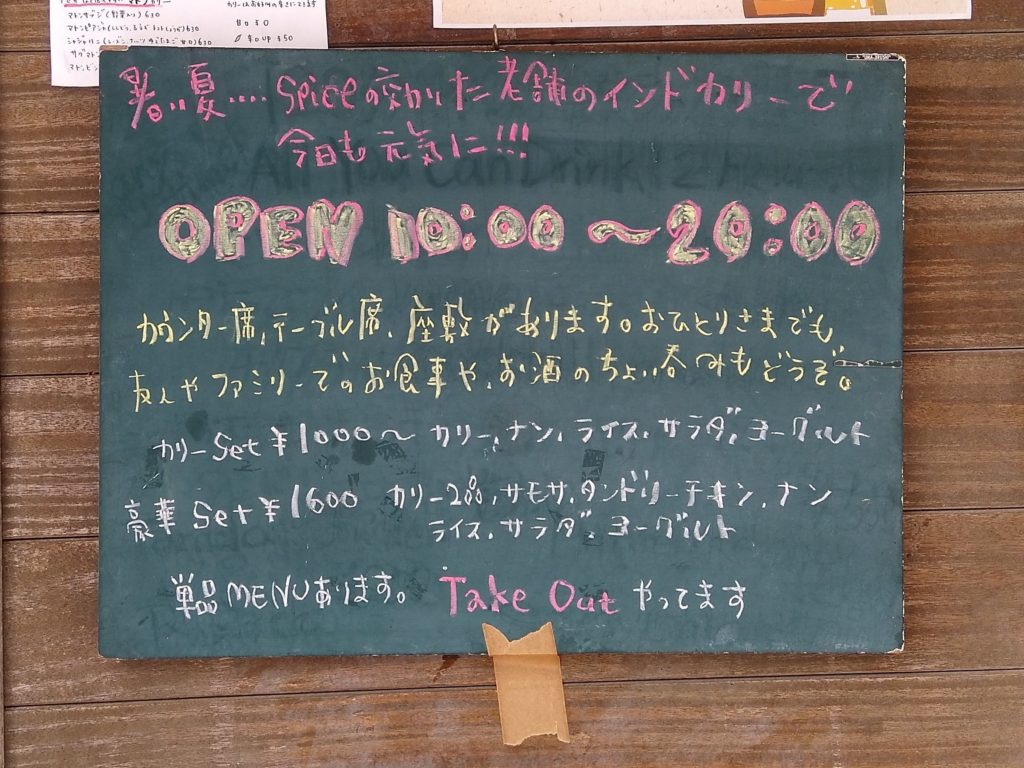 マトンサグジ(野菜入り)630
¥0 50
¥0 UP ¥50
暑い夏....Spiceの効いた老舗のインドカリーで
今日も元気に!!!
All You Can Drink 2 hour
OPEN 10:00~20:00
カウンター席、テーブル席、座敷があります。おひとりさまでも
友人やファミリーでのお食事や、お酒のちょい呑みもどうぞ。
カリーSet ¥1000~ カリー、ナン、ライス、サラダ、ヨーグルト
豪華Set ¥1600 カリー2コ、サモサ、タンドリーチキン、ナン
ライス、サラダ、ヨーグルト
単品MENUあります。 Take Out やってます